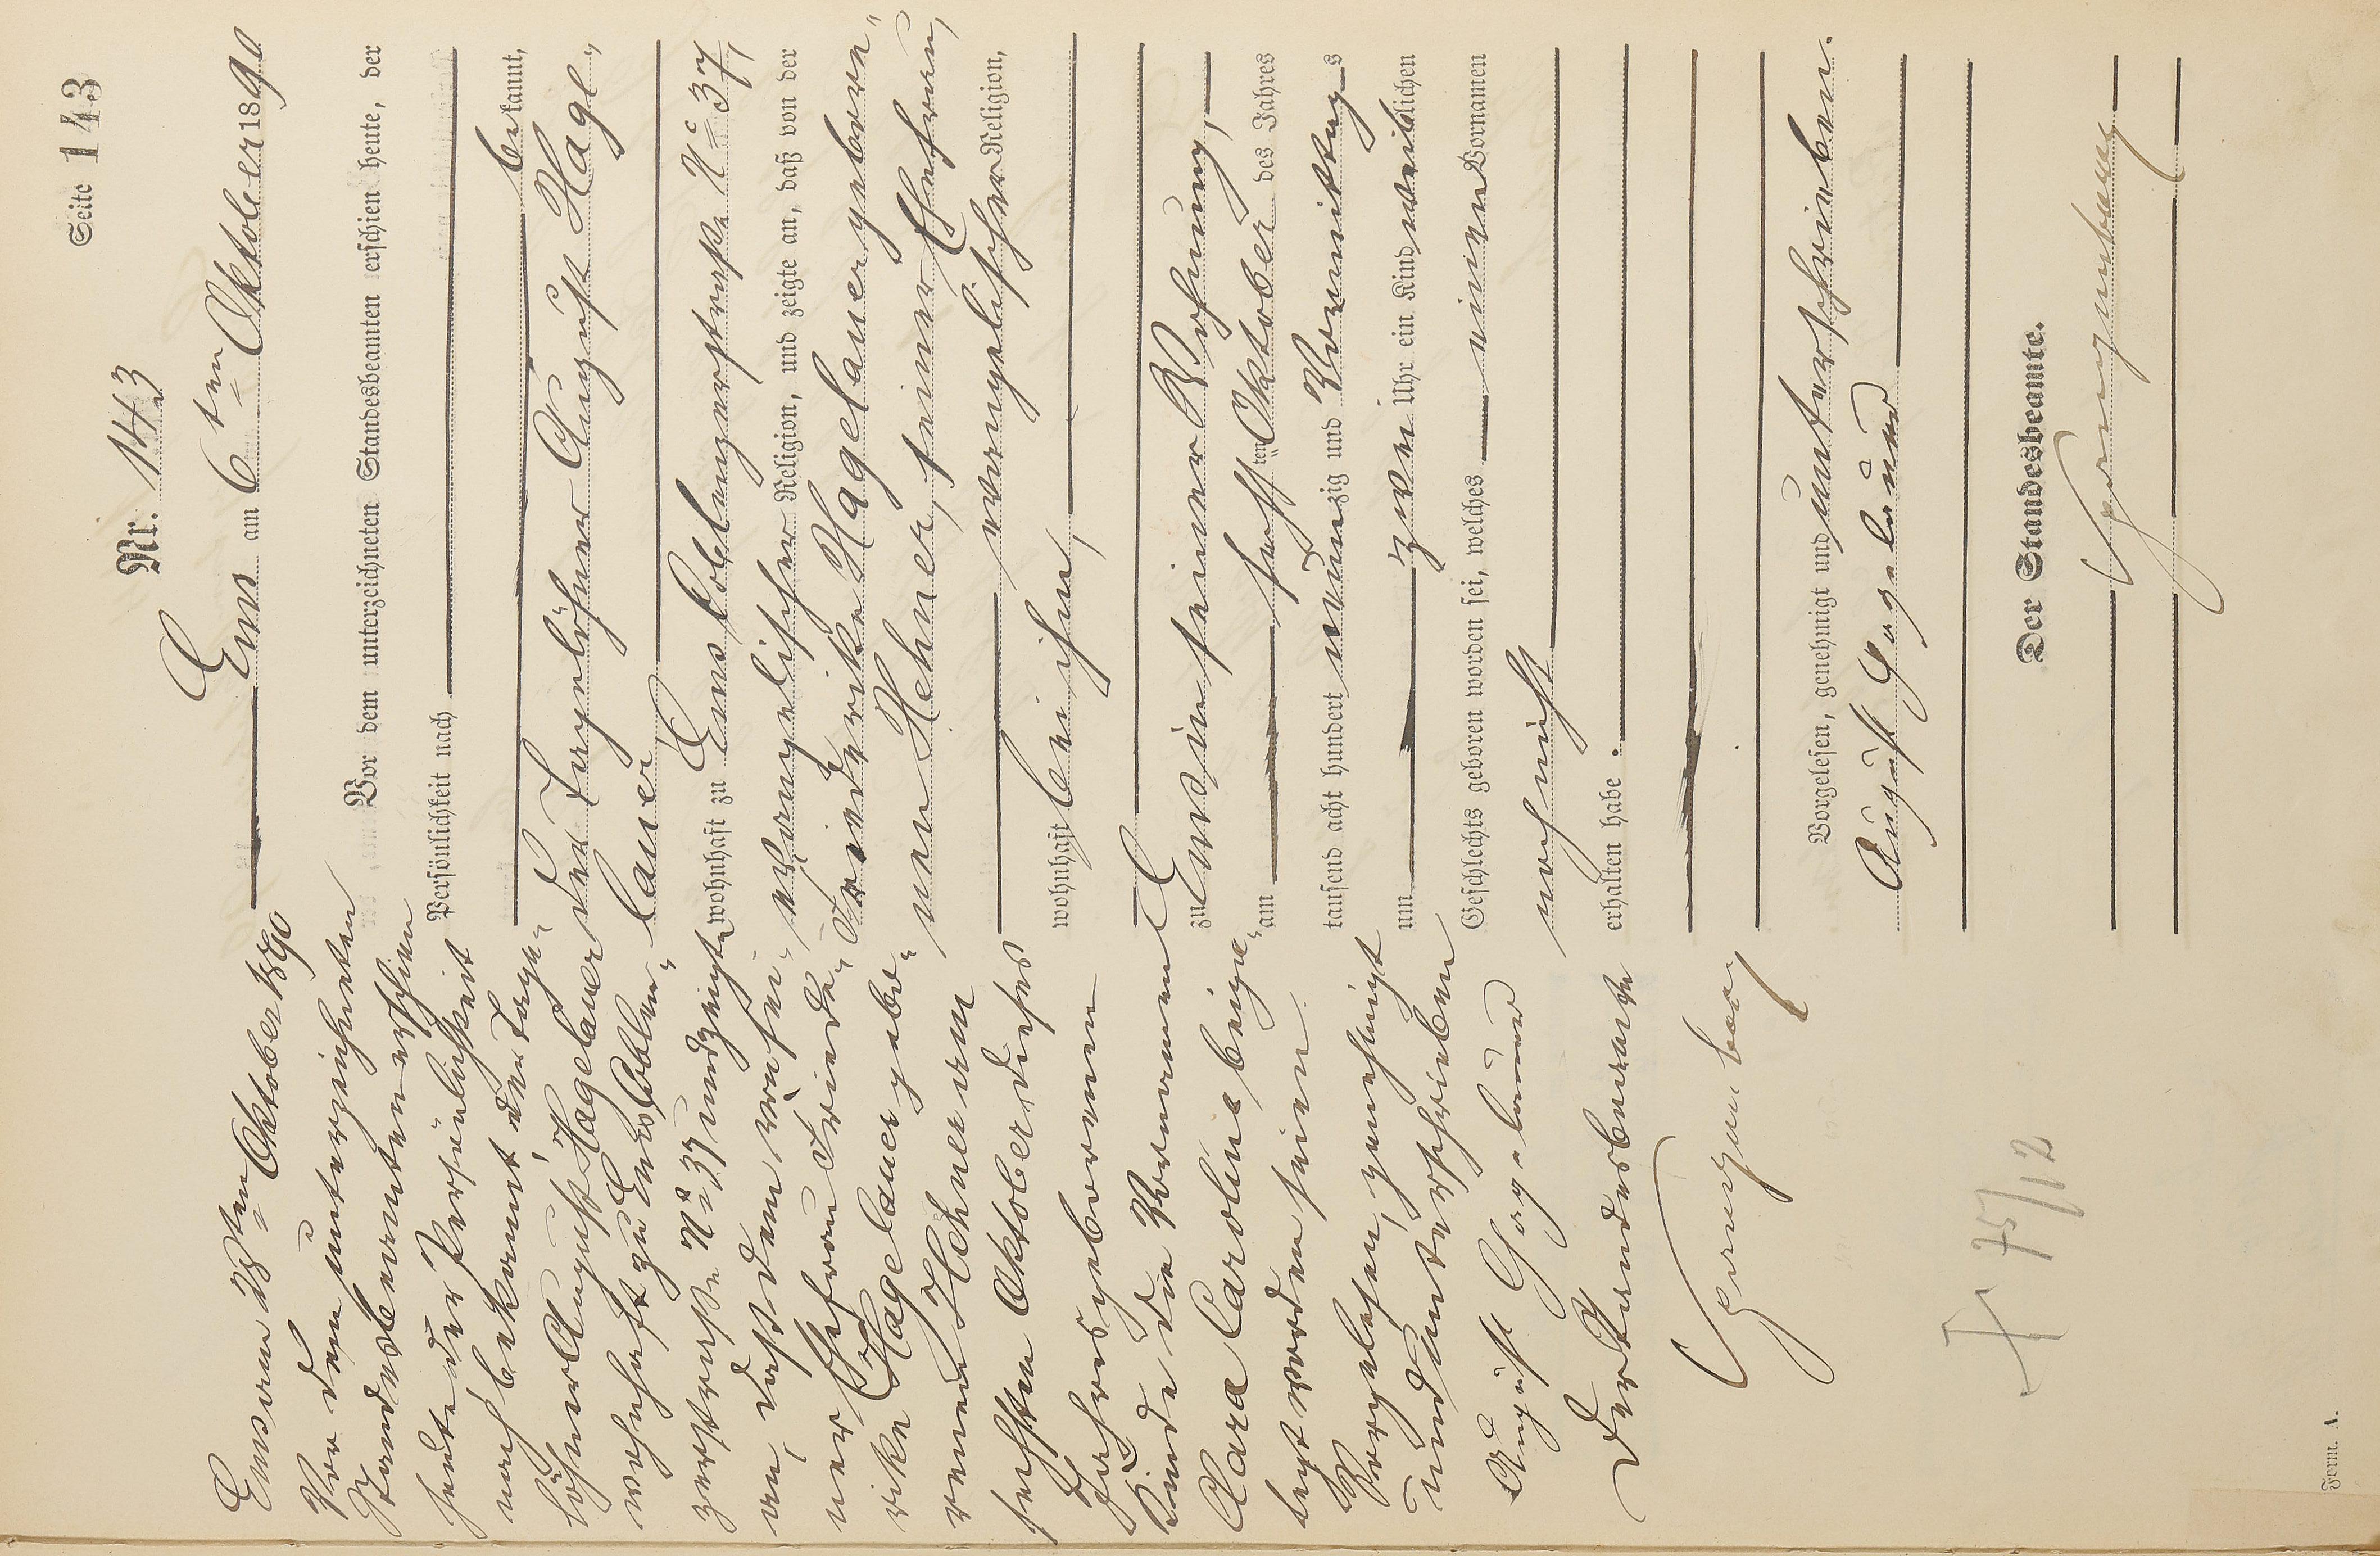 Seite 143
Nr. 143
Ems am 6ten Oktober 1890
Vor dem unterzeichneten Standesbeamten erschien heute, der
Persönlichkeit nach
bekannt,
der Tagelöhner August Hage-
lauer
wohnhaft zu Ems, Coblenzerstraße No 37,
evangelischer Religion, und zeigte an, daß von der
Friederike Hagelauer gebore-
nen Hehner, seiner Ehefrau,
evangelischer Religion,
wohnhaft bei ihm,
zu Ems in seiner Wohnung,
am sechsten Oktober des Jahres
tausend acht hundert neunzig und Vormittags
um zwei Uhr ein Kind weiblichen
Geschlechts geboren worden sei, welches einen Vornamen
noch nicht
erhalten habe.
Vorgelesen, genehmigt und unterschrieben.
August Hagelauer
Der Standesbeamte.
Ems am 28ten Oktober 1890
Vor dem unterzeichneten
Standesbeamten erschien
heute der Persönlichkeit
nach bekannt, der Tage-
löhner August Hagelauer
wohnhaft zu Ems, Coblen-
zerstraße No 37 und zeigte
an, daß dem von sei-
ner Ehefrau Friede-
rike Hagelauer gebo-
renen Hehner am
sechsten Oktober dieses
Jahres geborenen
Kinde die Vornamen
Clara Caroline beige-
legt worden seien.
Vorgelesen, genehmigt
und unterschrieben
August Hagelauer
Der Standesbeamte
Form. A.